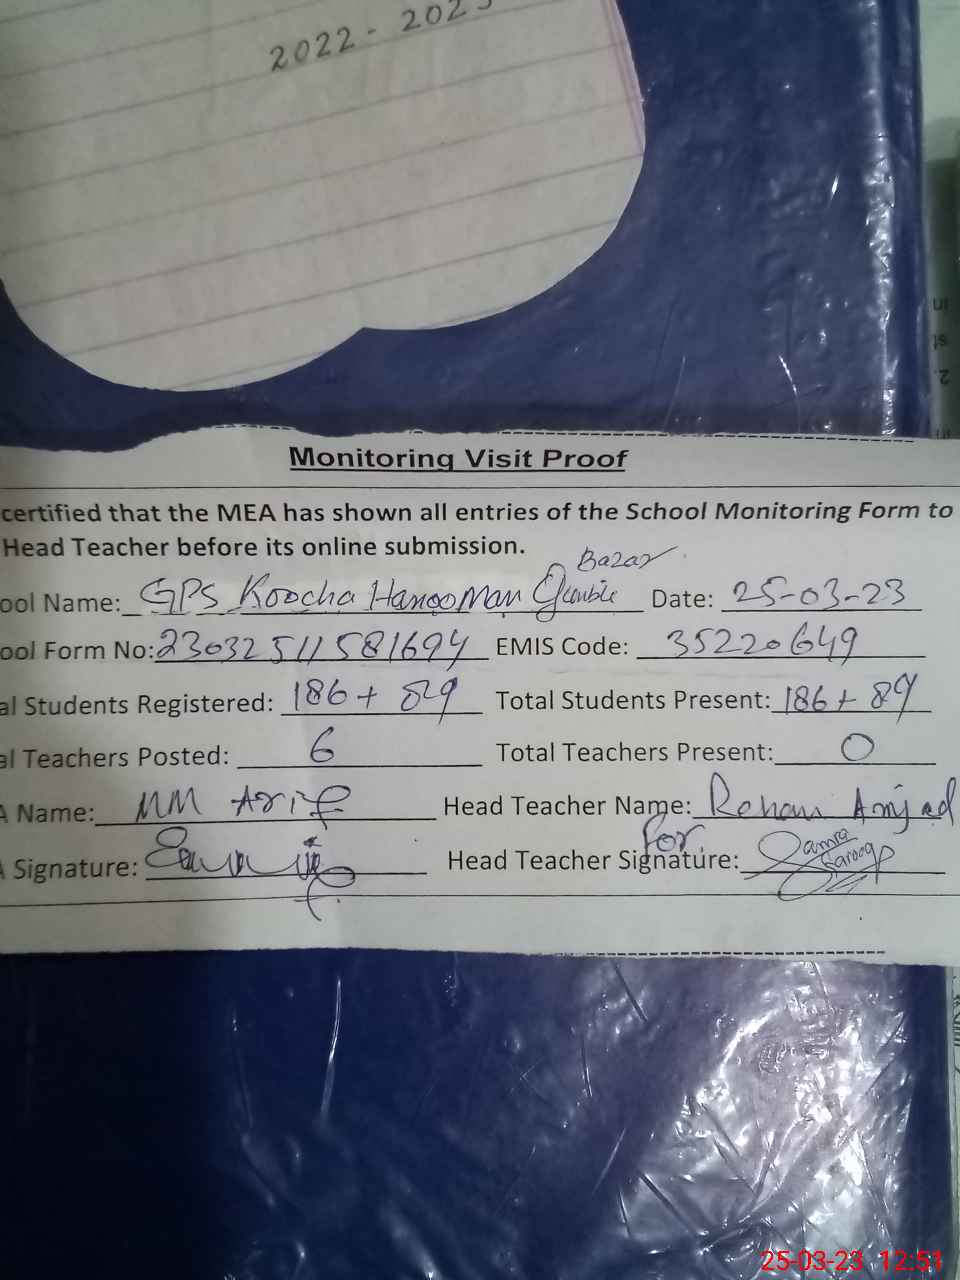 2022 - 2023
Monitoring Visit Proof
certified that the MEA has shown all entries of the School Monitoring Form to
Head Teacher before its online submission.
Bazar
ool Name: GPS Koocha Hanooman Date: 25-03-23
ool Form No: 23032511581694 EMIS Code: 35220649
al Students Registered: 186 + 89 Total Students Present: 186 + 89
al Teachers Posted: 6 Total Teachers Present: 0
A Name: MM Arif Head Teacher Name: Rehan Amjad
for
A Signature: Head Teacher Signature: Samra Farooq
25-03-23 12:51